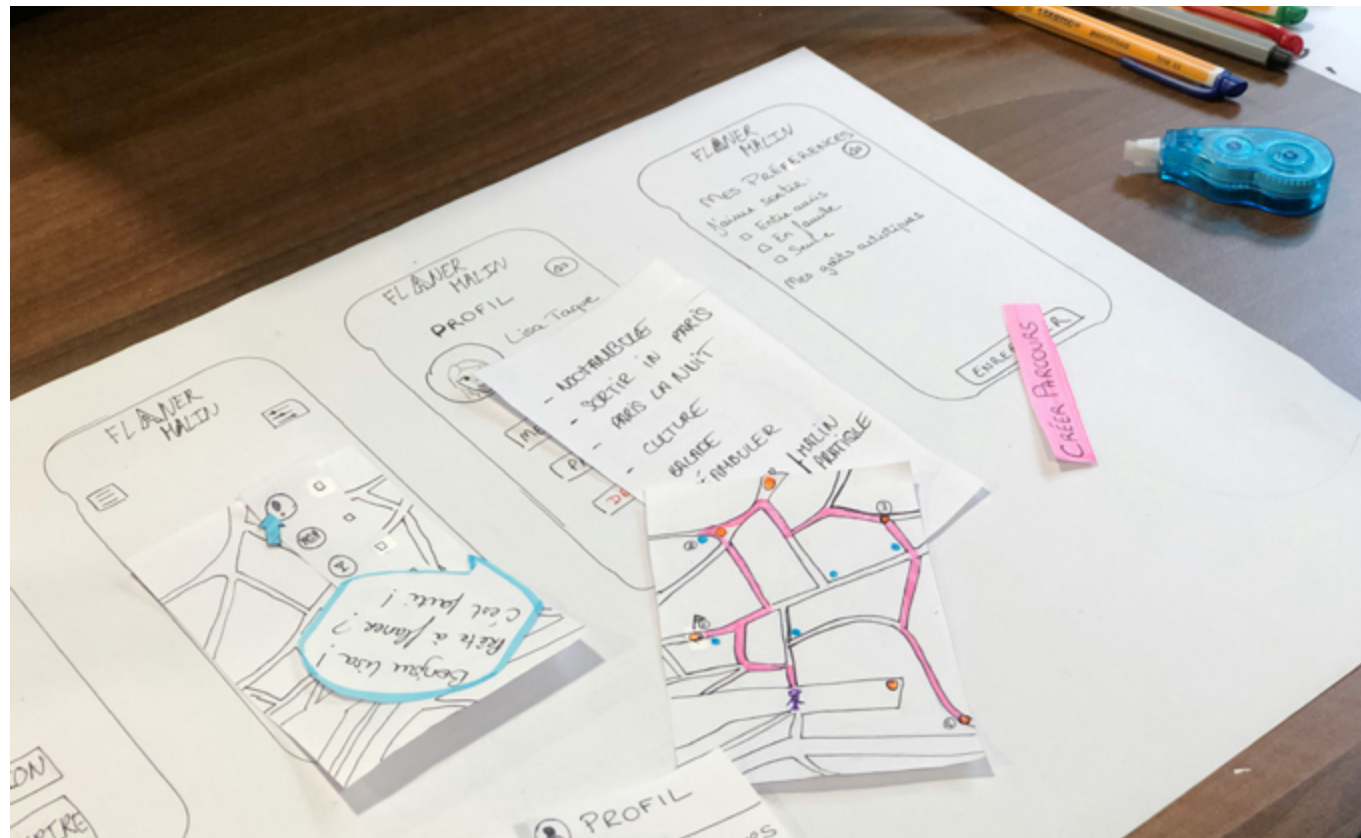 FLÂNER
MALIN
Bonjour Lisa!
Prête à flâner?
C'est parti!
FLÂNER
MALIN
PROFIL
Lisa Taque
ME
PA
DÉ
- NOCTAMBULE
- SORTIR IN PARIS
- PARIS LA NUIT
- CULTURE
BALADE
AMBULER
MALIN
PRATIQUE
FLÂNER
MALIN
MES PRÉFÉRENCES
J'aime sortir:
Entre amis
En famille
Seule
Mes goûts artistiques
CRÉER PARCOURS
ON
PROFIL